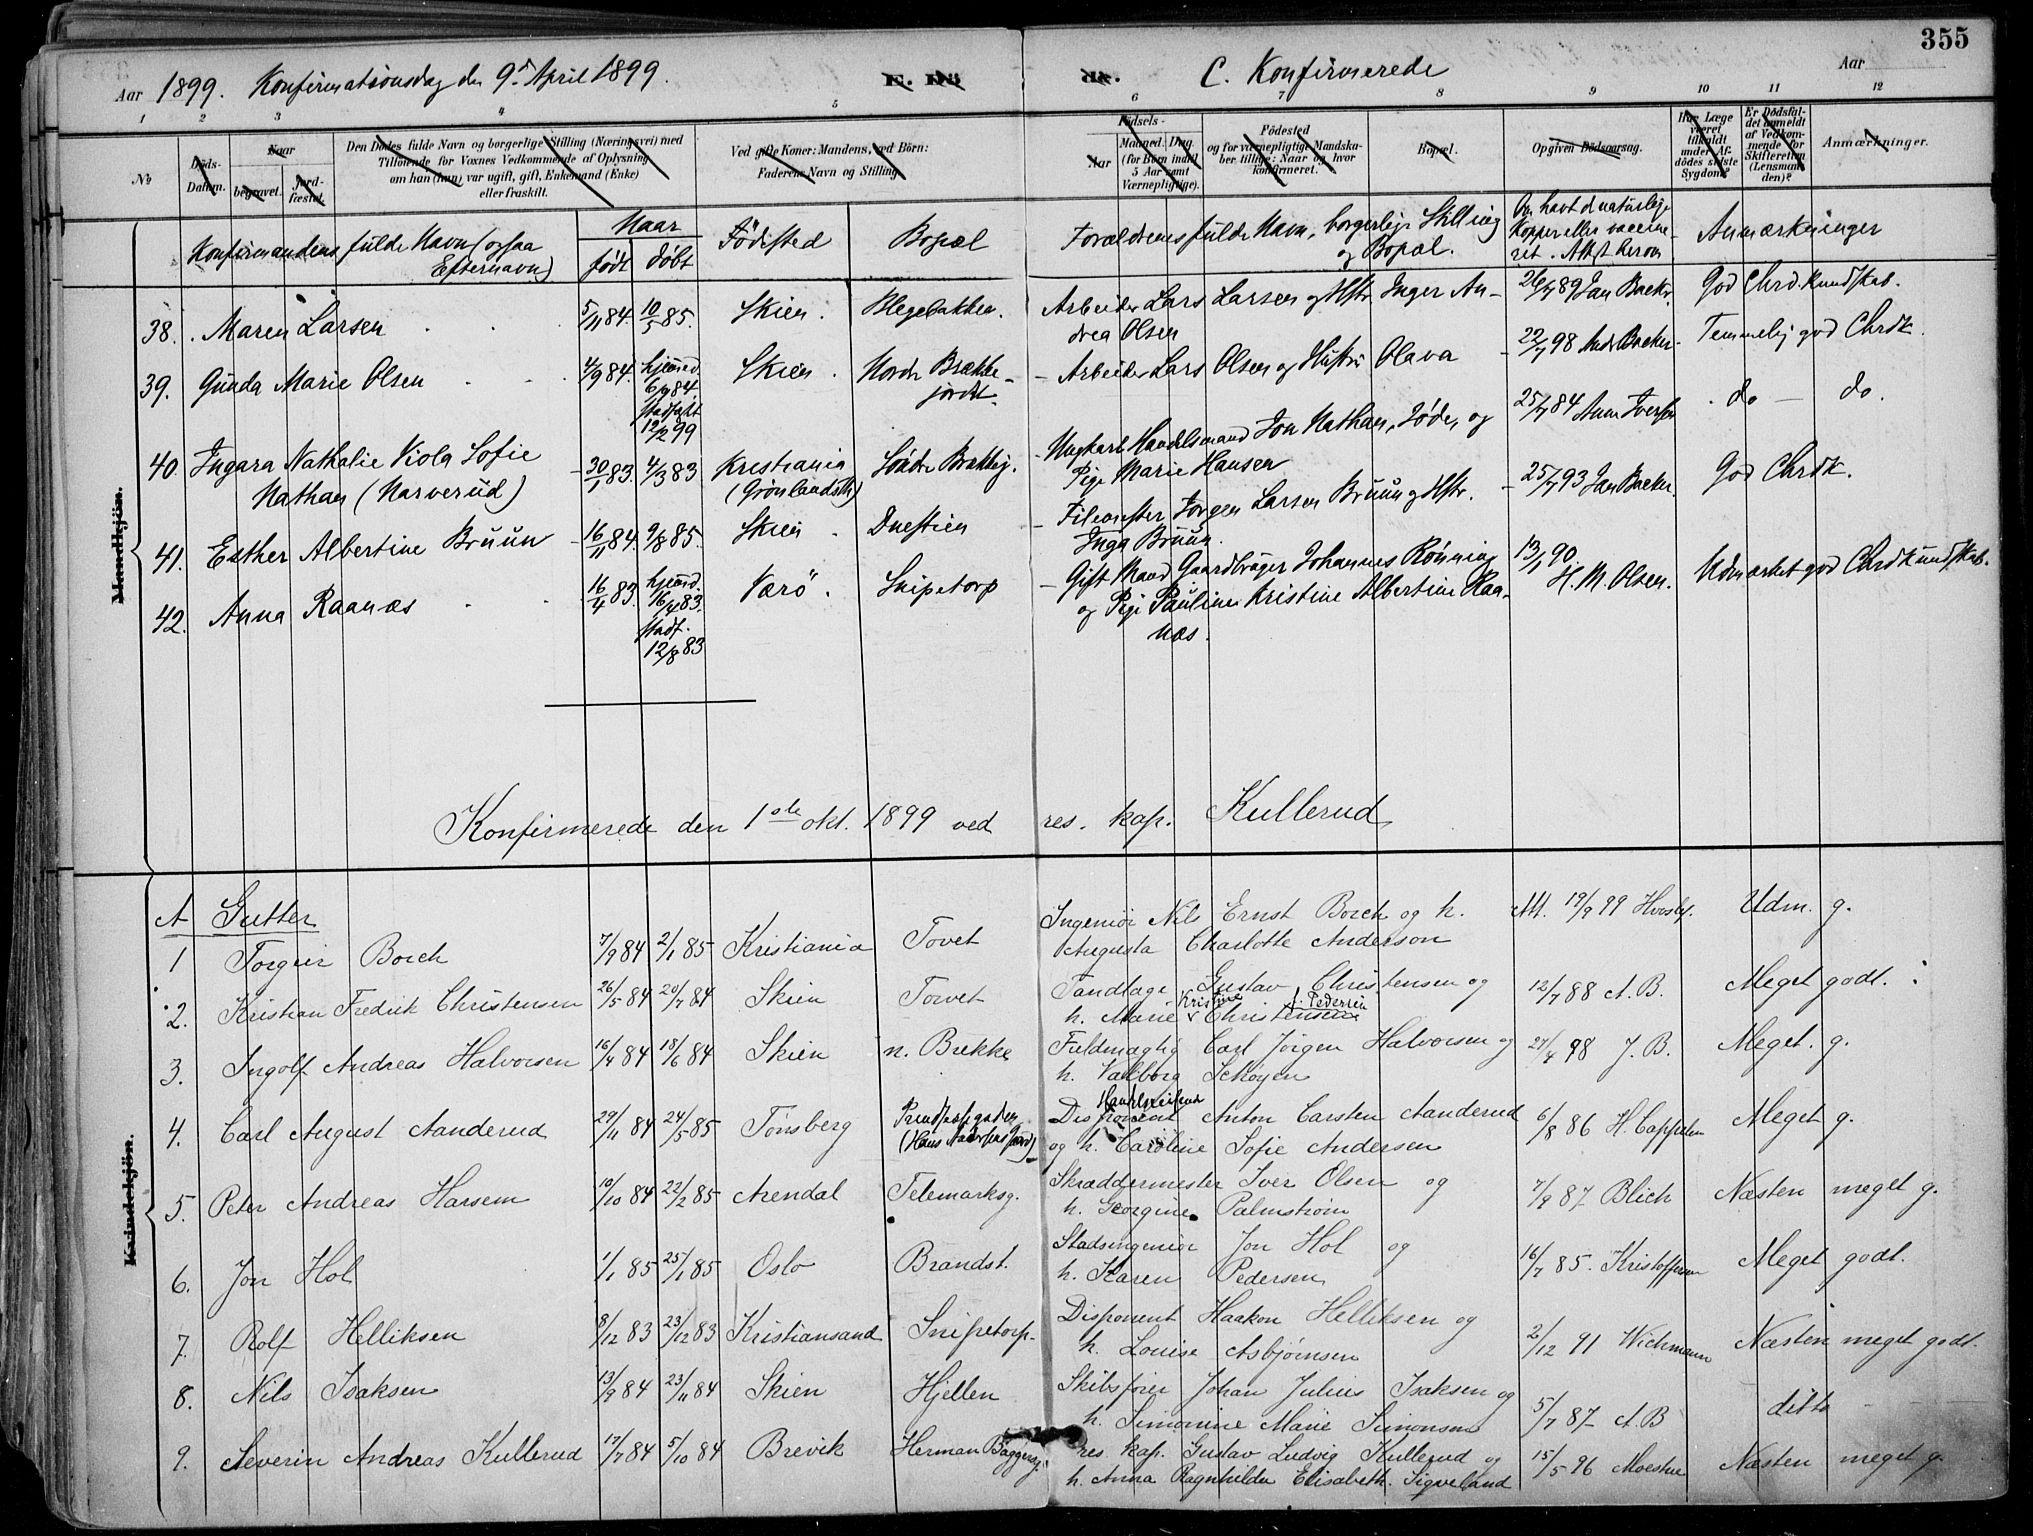 355
Aar 1899. Konfirmationsdag den 9. April 1899. C. Konfirmerede Aar
1 2 3 4 5 6 7 8 9 10 11 12
№
Døds-Datum.
Naar
begravet. jord-fæstet.
Den Dødes fulde Navn og borgerlige Stilling (Næringsvei) med
Tilføiende for Voxnes Vedkommende af Oplysning
om han (hun) var ugift, gift, Enkemand (Enke)
eller fraskilt.
Ved gifte Koner: Mandens, ved Børn:
Faderens Navn og Stilling
Fødsels-
Aar
Maaned. Dag.
(for Børn indtil
5 Aar samt
Værnepligtige).
Fødested
og for værnepligtige Mandska-
ber tillige: Naar og hvor
konfirmeret.
Bopæl.
Opgiven Dødsaarsag.
Har Læge
været
tilkaldt
under Af-
dødes sidste
Sygdom?
Er Dødsfal-
det anmeldt
af Vedkom-
mende for
Skifteretten
(Lensman-
den)?
Anmærkninger.
Konfirmandens fulde Navn (ogsaa
Efternavn)
Naar
født døbt
Fødested
Bopæl
Forældrenes fulde Navn, borgerlige Stilling
og Bopæl.
Om havt de naturlige
Kopper eller vaccine-
ret. Attest herom
Anmærkninger
Mandkjön.
38. Maren Larsen 5/11 84. 10/5 85. Skien. Blegebakken. Arbeider Lars Larsen og Hstr Inger An- 26/7 89 Jan Backer. God Chrd.kundskab.
drea Olsen
39. Gunda Marie Olsen 4/9 84. hjemmed. Skien. Nordre Brække- Arbeider Lars Olsen og Hustru Olava 22/7 98 Backer. Temmelig god Chrdk.
6/9 84. jordet.
stadfæst
12/2 99
40. Ingara Nathalie Viola Sofie 30/1 83. 4/3 83 Kristiania Søndre Brækkej. Ungkarl Handelsmand Jon Nathan, Jøde, og 25/7 84 Iversen do — do.
Nathan (Narverud) (Grønlandsth.) Pige Marie Hansen
41. Esther Albertine Bruun 16/11 84. 9/8 85. Skien Duestien Jørgen Larsen Bruun og Hstr. 25/7 93 Jan Backer. God Chrdk.
Inga Bruun.
42. Anna Raanæs 16/4 83. hjemmed. Værö. Snipetorp Gift Mand Gaardbruger Johannes Rönning 13/1 90 Udmærket god Chrdkundskab.
16/4 83. og Pige Pauline Kristine Albertine Raa- H. M. Olsen.
stadf. næs.
12/8 83
Konfirmerede den 1ste okt. 1899 ved res. kap. Kullerud
Kvindekjön.
A Gutter
1 Torgeir Borch 7/9 84 2/1 85 Kristiania Torvet Ingeniør Nils Ernst Borch og h. Att. 19/9 99 Udm. g.
Augusta Charlotte Anderson
2. Kristian Fredrik Christensen 26/5 84 20/7 84 Skien Torvet Tandlæge Gustav Christensen og 12/7 88 A. B. Meget godt.
h. Marie Kristine Christensen f. Pedersen
3. Ingolf Andreas Halvorsen 16/4 84 18/6 84 Skien n. Brekke Fuldmægtig Carl Jörgen Halvorsen og 27/4 98 J. B. Meget. g.
h. Valborg Schøyen
4. Carl August Aanderud 29/11 84 24/5 85 Tönsberg Disponent Anton Carsten Aanderud 6/8 86 H. Cappelen Meget g.
og h. Caroline Sofie Andersen
5. Peter Andreas Harsem 10/10 84 22/2 85 Arendal Telemarksg. Skræddermester Iver Olsen og 7/9 87 Blich Næsten meget g.
h. Georgine Palmstrøm
6. Jon Hol 1/1 85 25/1 85 Oslo Brandst. Stadsingeniør Jon Hol og 16/7 85. Kristoffersen Meget godt.
h. Karen Pedersen
7. Rolf Helliksen 8/12 83 23/12 83 Kristiansand Snipetorp- Disponent Haakon Helliksen og 2/12 91 Wichmann Næsten meget godt.
h. Louise Asbjørnsen
8. Nils Isaksen 13/9 84 23/11 84 Skien Hjellen Skibsfører Johan Julius Isaksen og 5/7 87 A. B ditto
h. Simonine Marie Simonsen
9. Severin Andreas Kullerud 17/7 84 5/10 84 Brevik Herman Baggersg. res. kap. Gustav Ludvig Kullerud og 15/5 96 Moestue Næsten meget g.
h. Anna Ragnhilda Elisabeth Sigveland